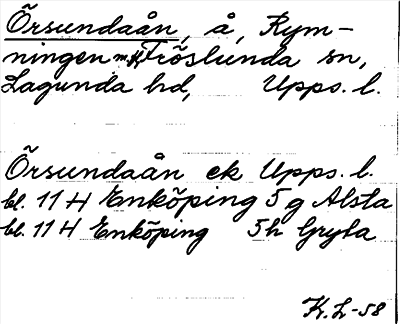 Örsundaån, å, Rym-
ningen m.fl. Fröslunda sn,
Lagunda hd, Upps. l.
Örsundaån ek Upps. l.
bl. 11 H Enköping 5 g Alsta
bl. 11 H Enköping 5h Gryta
K.L-58